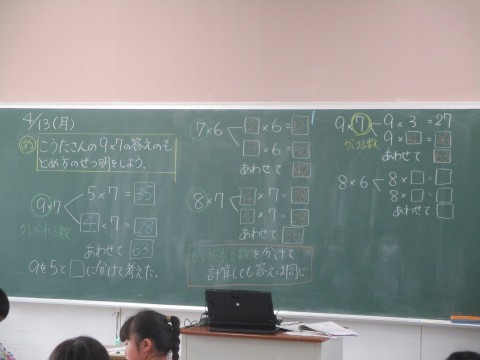 4/13(月)
め こうたさんの9×7の答えのも
とめ方のせつ明をしよう。
9×7
5×7=35
4×7=28
かけられる数
あわせて63
9を5と□に分けて考えた。
7×6
×6=
□×6=
あわせて
8×7
×7=
×7=
あわせて
かけられる数を分けて
計算しても答えは同じ
9×7
9×3=27
9×
かける数
あわせて
8×6
8×□=□
8×□=□
あわせて□